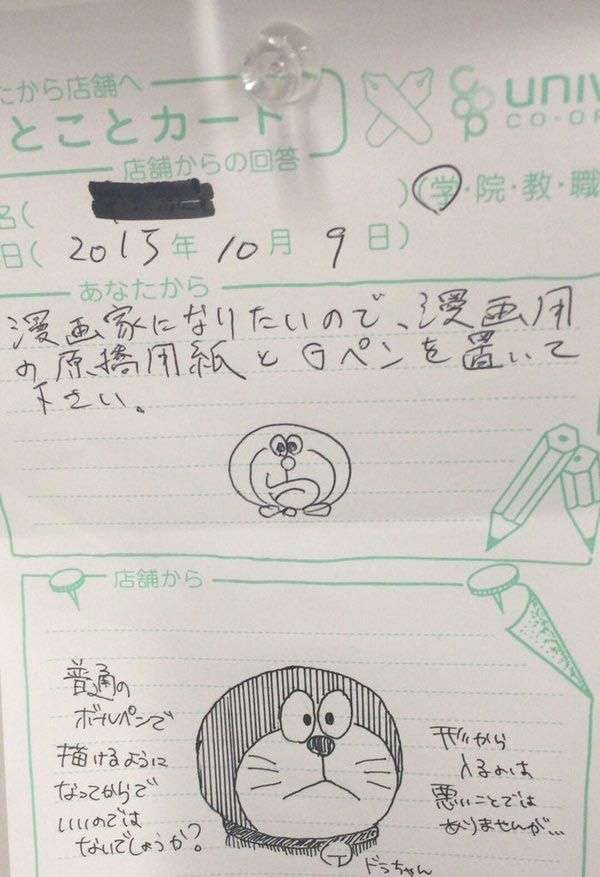 たから店舗へ
とことカード
店舗からの回答
UNIV
CO-OP
名( )(学・院・教・職
日( 2015年 10月 9日)
あなたから
漫画家になりたいので、漫画用
の原稿用紙とGペンを置いて
下さい。
店舗から
普通の
ボールペンで
描けるように
なってからで
いいのでは
ないでしょうか?
形から
入るのは
悪いことでは
ありませんが…
ドラちゃん